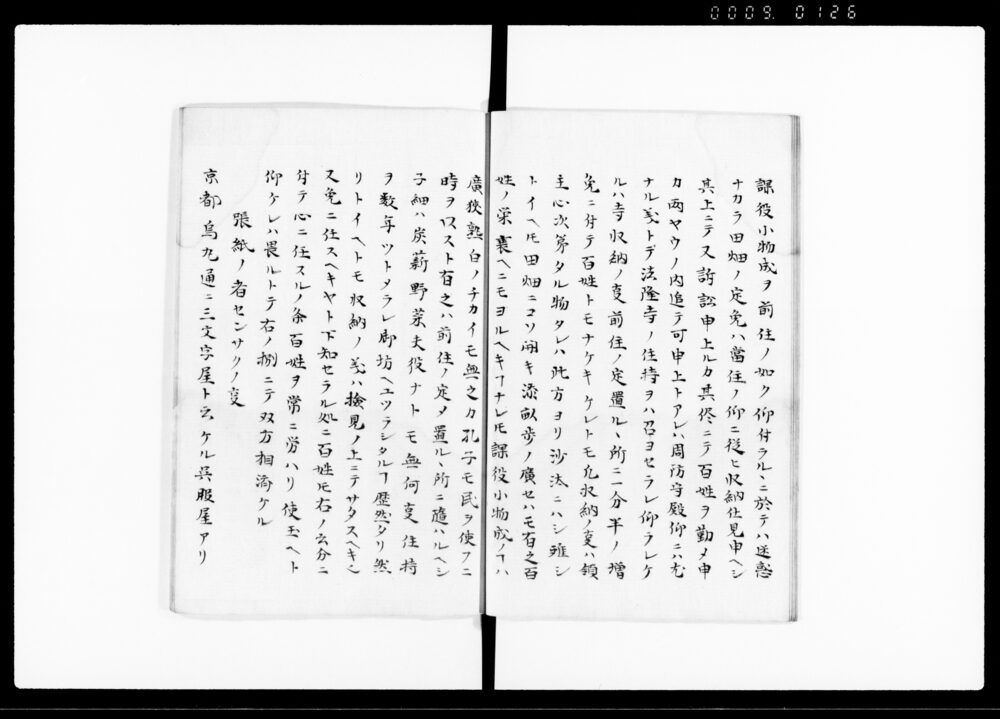 0009 0126
課役小物成ヲ前住ノ如ク仰付ラルヽニ於テハ迷惑
ナカラ田畑ノ定免ハ當住ノ仰ニ従ヒ収納仕見申ヘシ
其上ニテ又訴訟申上ルカ其侭ニテ百姓ヲ勤メ申
カ両ヤウノ内追テ可申上トアレハ周防守殿仰ニハ尤
ナル義トテ法隆寺ノ住持ヲハ召ヨセラレ仰ラレケ
ルハ寺収納ノ事前住ノ定置ルヽ所ニ一分半ノ増
免ニ付テ百姓トモナケキケレトモ凡収納ノ事ハ領
主心次第タル物タレハ此方ヨリ沙汰ニハシ難シ
トイヘ𪜈田畑ニコソ闹キ添畝歩ノ廣セハモ有之百
姓ノ栄衰ヘニモヨルヘキヿナレ𪜈課役小物成ノヿハ
廣狭熟白ノチカイモ無之カ孔子モ民ヲ使フニ
時ヲ以スト有之ハ前住ノ定メ置ルヽ所ニ随ハルヘシ
子細ハ炭薪野菜夫役ナトモ無何事住持
ヲ数年ツトメラレ御坊ヘユツラシタルヿ歴然タリ然
リトイヘトモ収納ノ義ハ撿見ノ上ニテサタスヘキ之
又免ニ任スヘキヤト下知セラル処ニ百姓𪜈右ノ云分ニ
付テ心ニ任スルノ条百姓ヲ常ニ労ハリ使玉ヘト
仰ケレハ畏ルトテ右ノ捌ニテ双方相済ケル
張紙ノ者センサクノ事
京都烏丸通ニ三文字屋ト云ケル呉服屋アリ